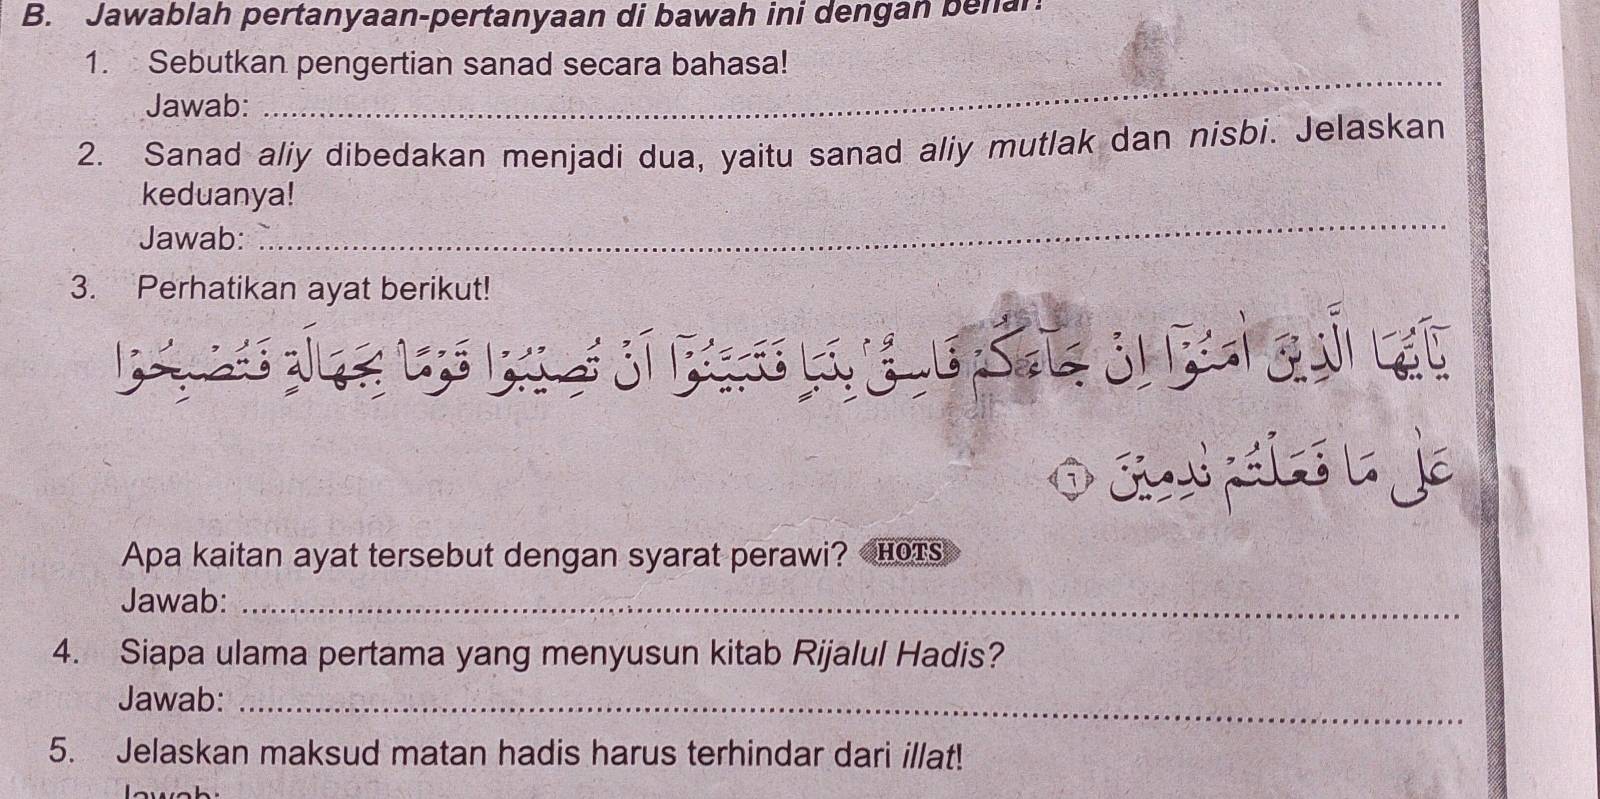 B. Jawablah pertanyaan-pertanyaan di bawah ini dengan benar!
1. Sebutkan pengertian sanad secara bahasa!
Jawab: ........................................
2. Sanad aliy dibedakan menjadi dua, yaitu sanad aliy mutlak dan nisbi. Jelaskan
keduanya!
Jawab: ........................................
3. Perhatikan ayat berikut!
يٰٓاَيُّهَا الَّذِيْنَ اٰمَنُوْٓا اِنْ جَاۤءَكُمْ فَاسِقٌۢ بِنَبَاٍ فَتَبَيَّنُوْٓا اَنْ تُصِيْبُوْا قَوْمًاۢ بِجَهَالَةٍ فَتُصْبِحُوْا
عَلٰى مَا فَعَلْتُمْ نٰدِمِيْنَ ٦
Apa kaitan ayat tersebut dengan syarat perawi? HOTS
Jawab: ........................................
4. Siapa ulama pertama yang menyusun kitab Rijalul Hadis?
Jawab: ........................................
5. Jelaskan maksud matan hadis harus terhindar dari illat!
Jawab: